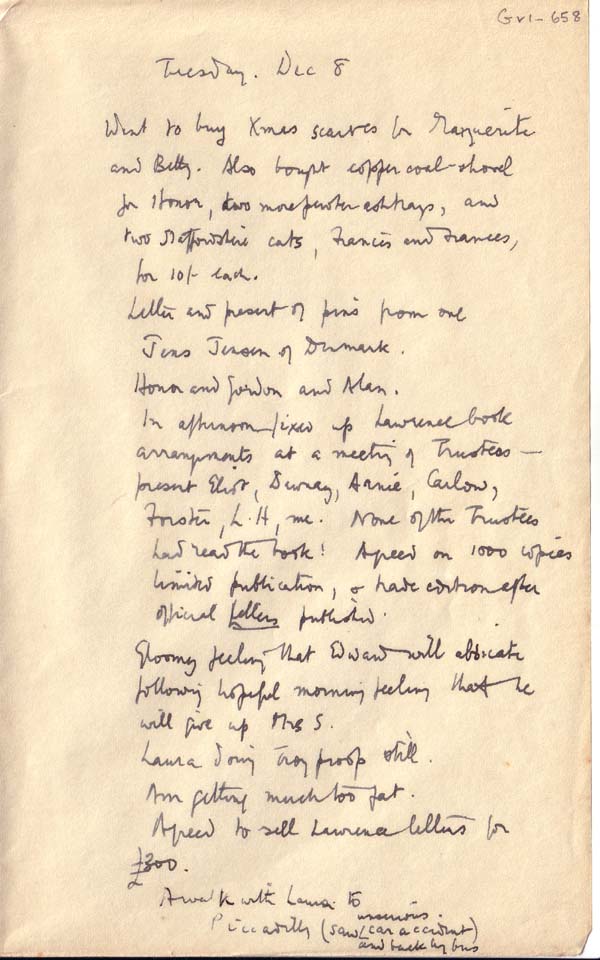 Gv1-658
Tuesday. Dec 8
Went to buy Xmas scarves for Marguerite
and Betty. Also bought copper coal-shovel
for Honor, two more pewter ashtrays, and
two Staffordshire cats, Francis and Frances,
for 10/- each.
Letter and present of pins from one
Jens Jensen of Denmark.
Honor and Gordon and Alan.
In afternoon fixed up Lawrence book
arrangements at a meeting of Trustees —
present Eliot, Dewnay, Arnie, Carlow,
Forster, L.H, me. None of the Trustees
had read the book! Agreed on 1000 copies
limited publication, & trade edition after
official Letters published.
Gloomy feeling that Edward will abdicate
following hopeful morning feeling that he
will give up Mrs S.
Laura doing Troy proofs still.
Am getting much too fat.
Agreed to sell Lawrence letters for
£300.
A walk with Laura to
Piccadilly (saw unserious car accident)
and back by bus